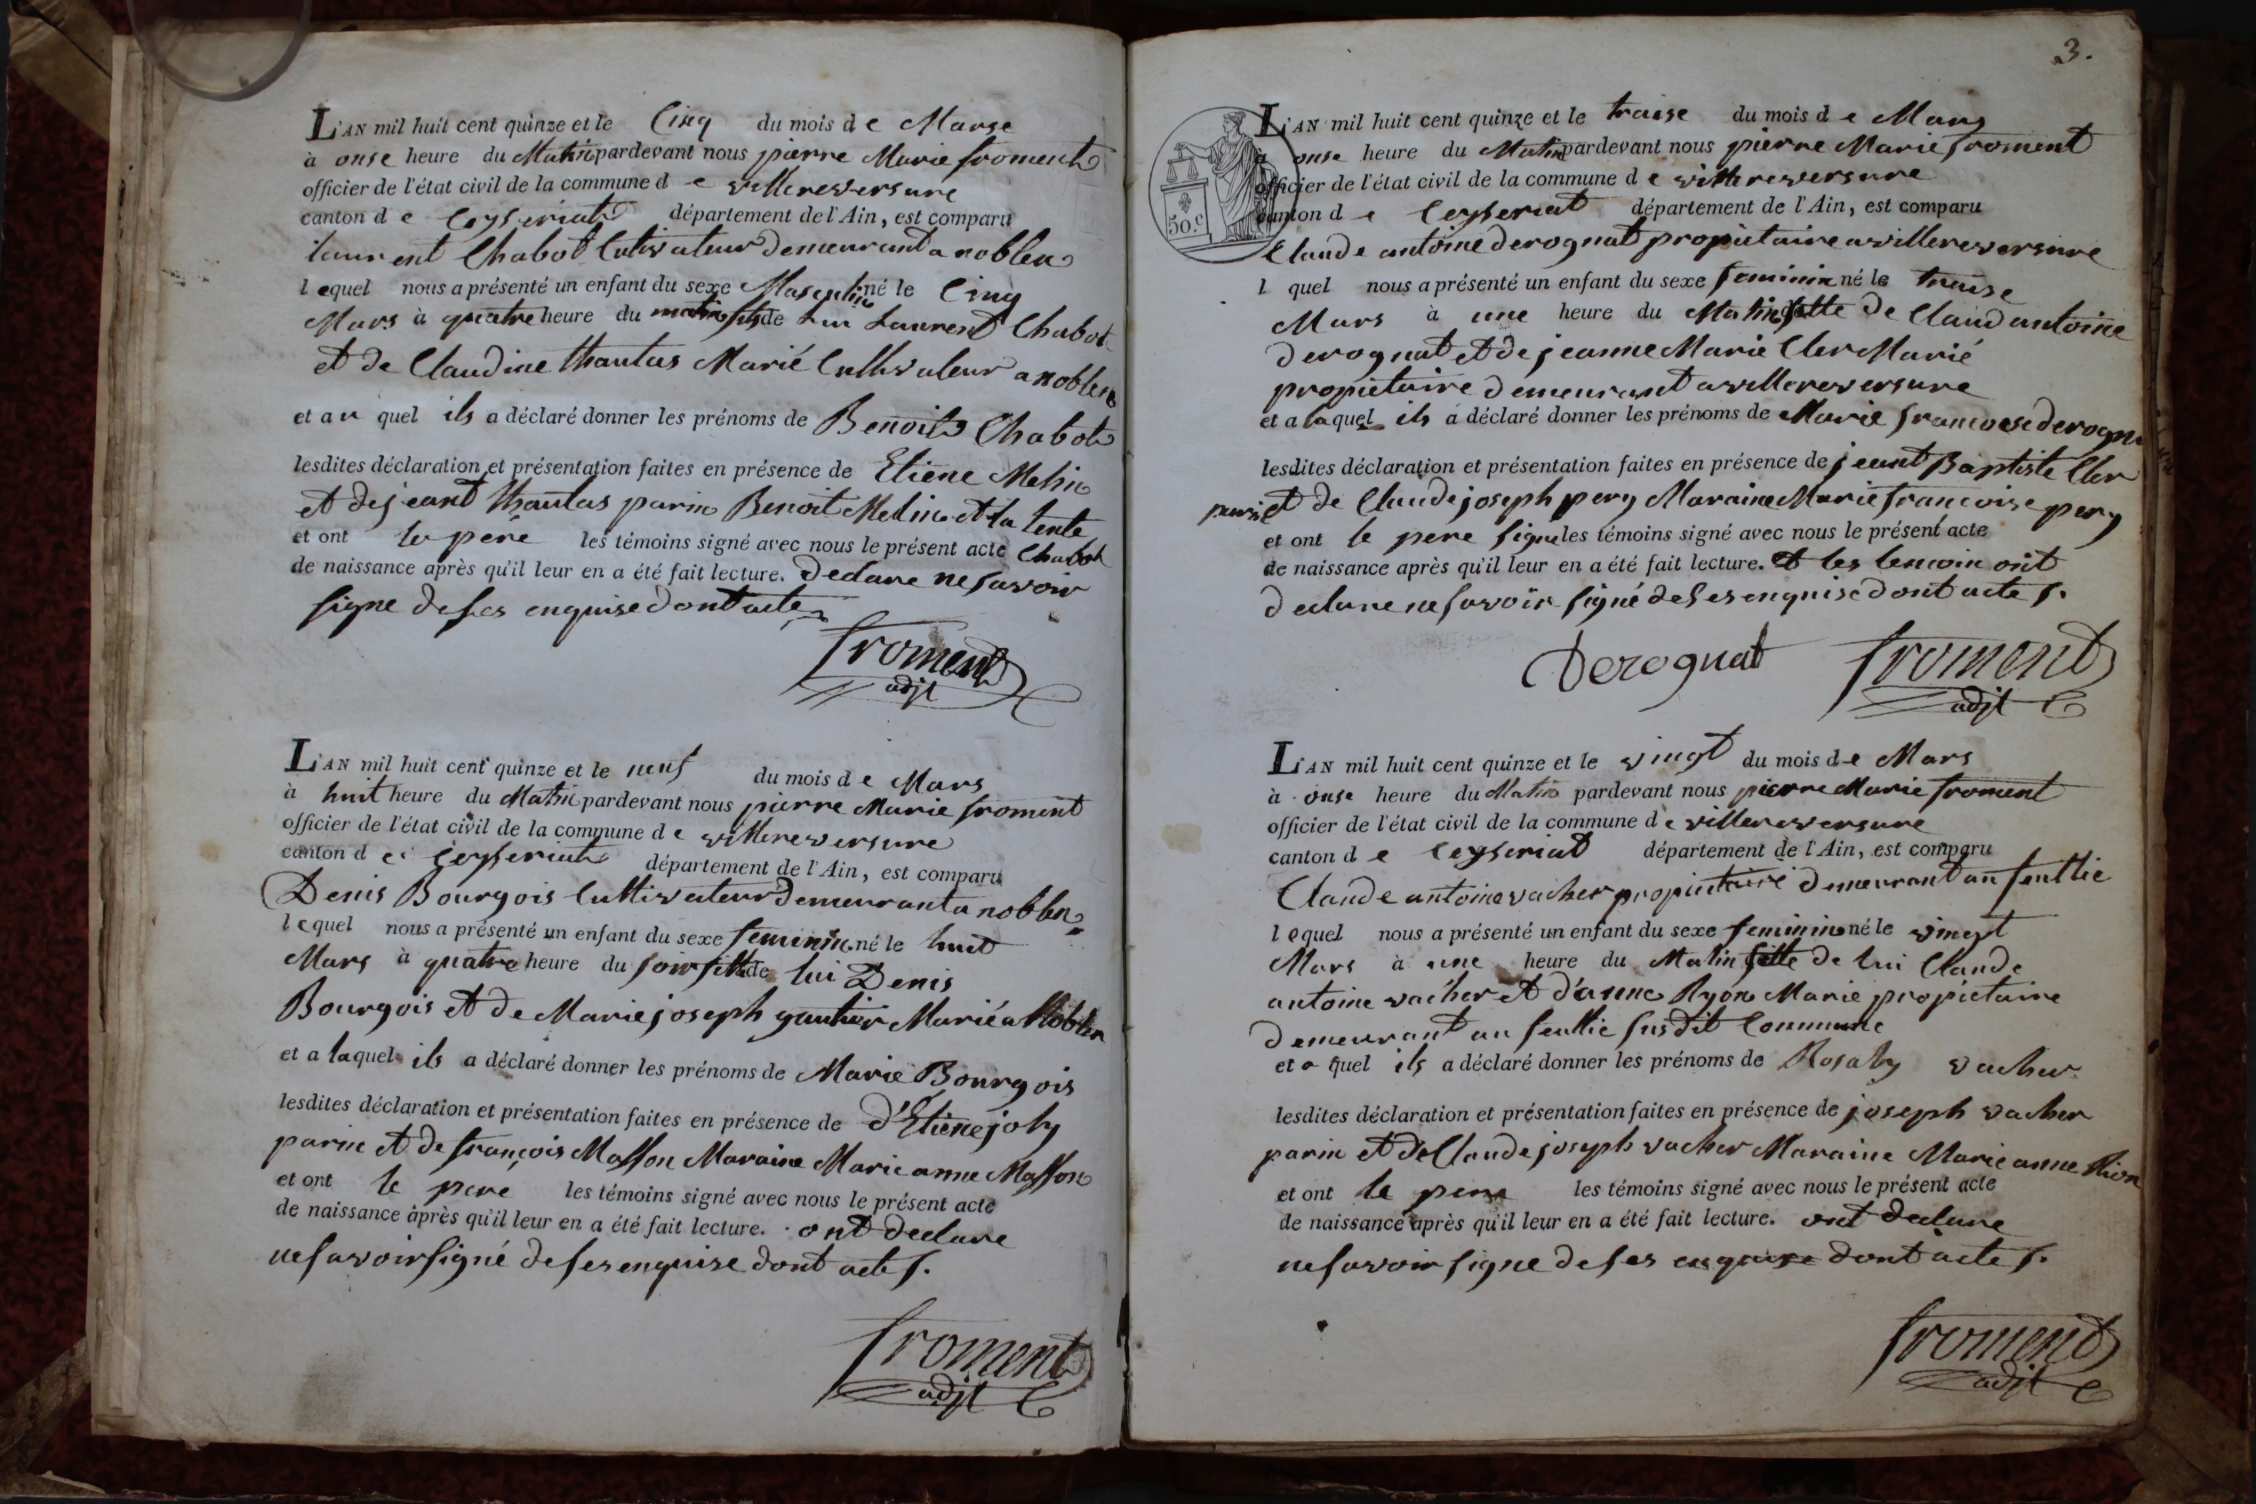 L'AN mil huit cent quinze et le Cinq du mois de Marse
à onse heure du Matin pardevant nous pierre Marie froment
officier de l'état civil de la commune de villereversure
canton de Ceyseriat département de l'Ain, est comparu
laurent Chabot Cultivateur demeurant a noblen
lequel nous a présenté un enfant du sexe Masculin né le Cinq
Mars à quatre heure du matin fils de Lui Laurent Chabot
et de Claudine thantas Marié Cultivateur a noblen
et au quel ils a déclaré donner les prénoms de Benoit Chabot
lesdites déclaration et présentation faites en présence de Etiene Melin
et de jeant thantas parin Benoit Melin et la tente
et ont le pére les témoins signé avec nous le présent acte Chabot
de naissance après qu'il leur en a été fait lecture. declare ne savoir
signe de ses enquise dont acte
froment
adjt
L'AN mil huit cent quinze et le neuf du mois de Mars
à huit heure du Matin pardevant nous pierre Marie froment
officier de l'état civil de la commune de villereversure
canton de Ceyseriat département de l'Ain, est comparu
Denis Bourgois Cultivateur demeurant a noblen
lequel nous a présenté un enfant du sexe feminin né le huit
Mars à quatre heure du soir fille de lui Denis
Bourgois et de Marie joseph gautier Marié a Noblen
et a laquel ils a déclaré donner les prénoms de Marie Bourgois
lesdites déclaration et présentation faites en présence de d'Etiene joly
parin et de françois Masson Maraine Marie anne Masson
et ont le pere les témoins signé avec nous le présent acte
de naissance après qu'il leur en a été fait lecture. ont declare
ne savoir signé de ses enquise dont acte f.
froment
adjt
3.
L'AN mil huit cent quinze et le traise du mois de Mars
à onse heure du Matin pardevant nous pierre Marie froment
officier de l'état civil de la commune de villereversure
canton de Ceyseriat département de l'Ain, est comparu
50.c
Claude antoine derognat propietaire a villereversure
l quel nous a présenté un enfant du sexe feminin né le traise
Mars à une heure du Matin fille de Claud antoine
derognat et de jeanne Marie Cler Marié
propietaire demeurant a villereversure
et a laquel ils a déclaré donner les prénoms de Marie francoise derogn
lesdites déclaration et présentation faites en présence de jeant Baptiste Cler
parin et de Claude joseph pery Maraine Marie francoise pery
et ont le pere signe les témoins signé avec nous le présent acte
de naissance après qu'il leur en a été fait lecture. et les temoin ont
declare ne savoir signé de ses enquise dont acte f.
Derognat froment
adjt
L'AN mil huit cent quinze et le vingt du mois de Mars
à onse heure du Matin pardevant nous pierre Marie froment
officier de l'état civil de la commune de villereversure
canton de Ceyseriat département de l'Ain, est comparu
Claude antoine vacher propietaire demeurant au feullie
lequel nous a présenté un enfant du sexe feminin né le vingt
Mars à une heure du Matin fille de lui Claude
antoine vacher et d'anne Ryon Marie propietaire
demeurant au feullie susdit Commune
et a quel ils a déclaré donner les prénoms de Rosaly vacher
lesdites déclaration et présentation faites en présence de joseph vacher
parin et de Claude joseph vacher Maraine Marie anne Rion
et ont le pere les témoins signé avec nous le présent acte
de naissance après qu'il leur en a été fait lecture. ont declare
ne savoir signe de ses enquise dont acte f.
froment
adjt